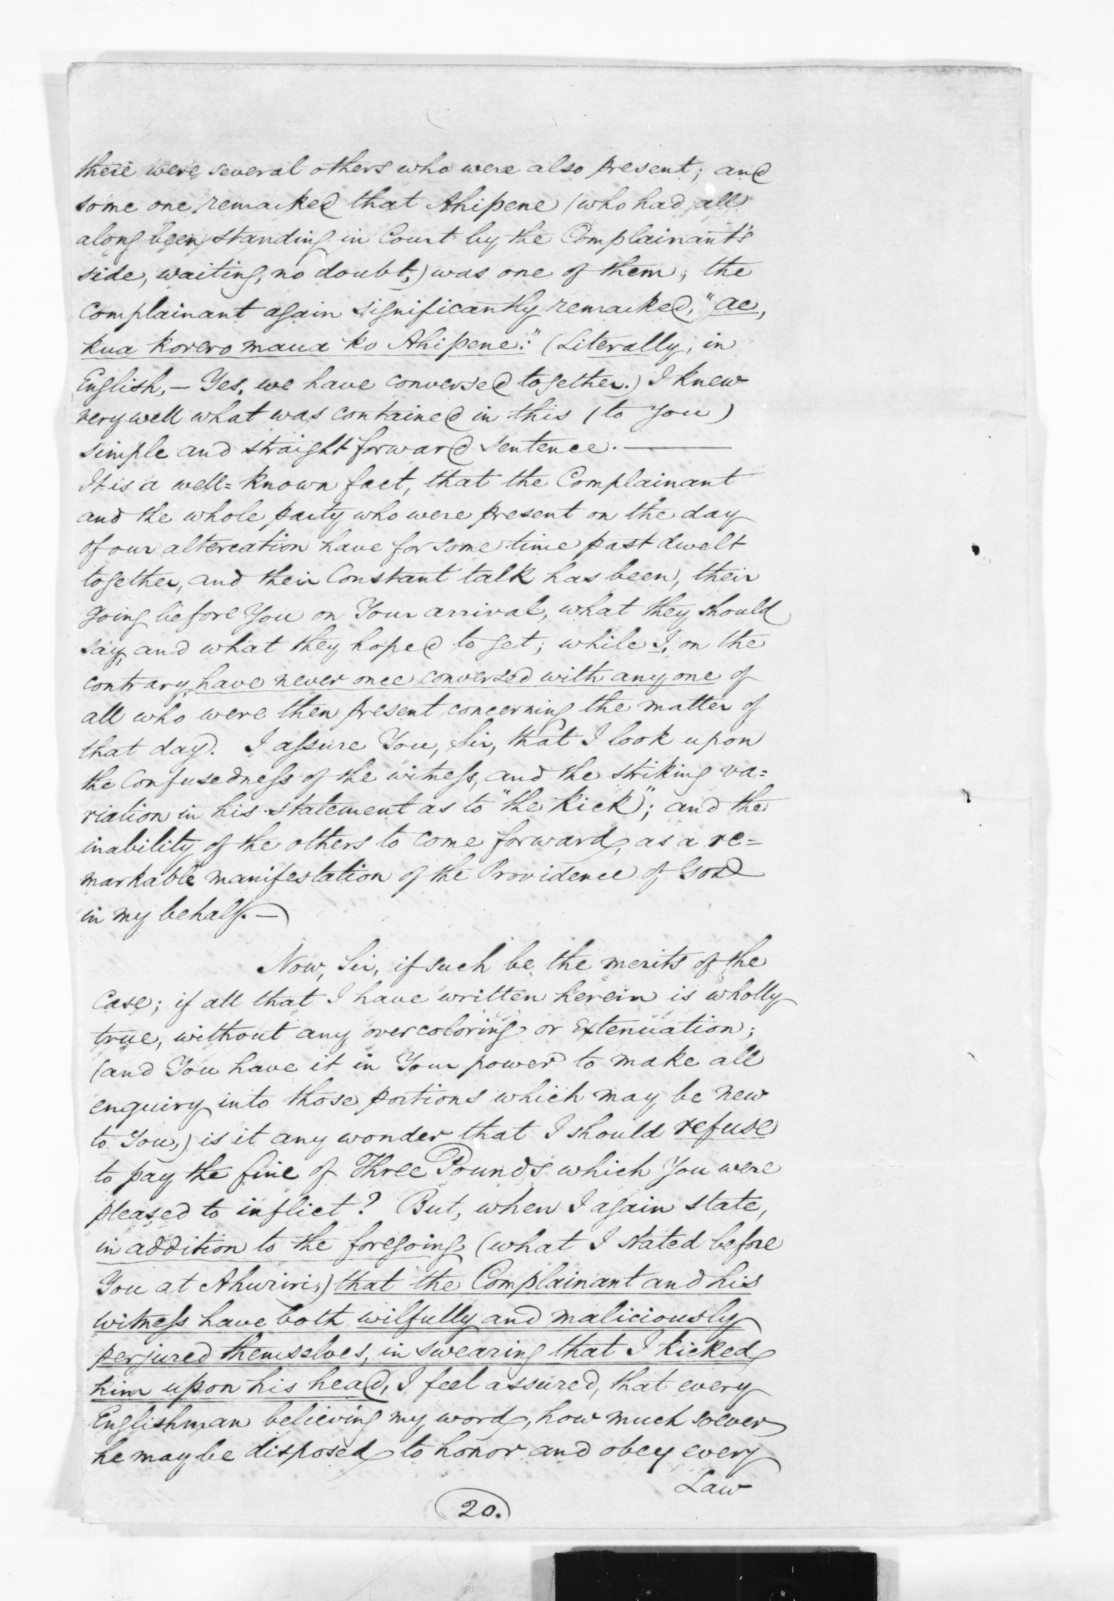 there were several others who were also present; and
some one remarked that Ahipene (who had all
along been standing in Court by the Complainant's
side, waiting, no doubt,) was one of them; the
Complainant again significantly remarked, "ae,
kua korero maua ko Ahipene." (Literally, in
English, – Yes, we have conversed together.) I knew
very well what was contained in this (to You)
simple and straightforward sentence. ———
It is a well=known fact, that the Complainant
and the whole party who were present on the day
of our altercation have for some time past dwelt
together, and their Constant talk has been, their
going before You on Your arrival, what they should
say, and what they hoped to get; while I, on the
contrary, have never once conversed with any one of
all who were then present concerning the matter of
that day. I assure You, Sir, that I look upon
the confusedness of the witness, and the striking va=
riation in his statement as to "the kick"; and the
inability of the others to come forward, as a re=
markable manifestation of the Providence of God
in my behalf. —
Now, Sir, if such be the merits of the
Case; if all that I have written herein is wholly
true, without any overcoloring or Extenuation;
(and You have it in Your power to make all
enquiry into those portions which may be new
to You,) is it any wonder that I should refuse
to pay the fine of Three Pounds which You were
pleased to inflict? But, when I again state,
in addition to the foregoing, (what I stated before
You at Ahuriri,) that the Complainant and his
witness have both wilfully and maliciously
perjured themselves, in swearing that I kicked
him upon his head, I feel assured, that every
Englishman believing my word, how much soever
he may be disposed to honor and obey every
Law
20.